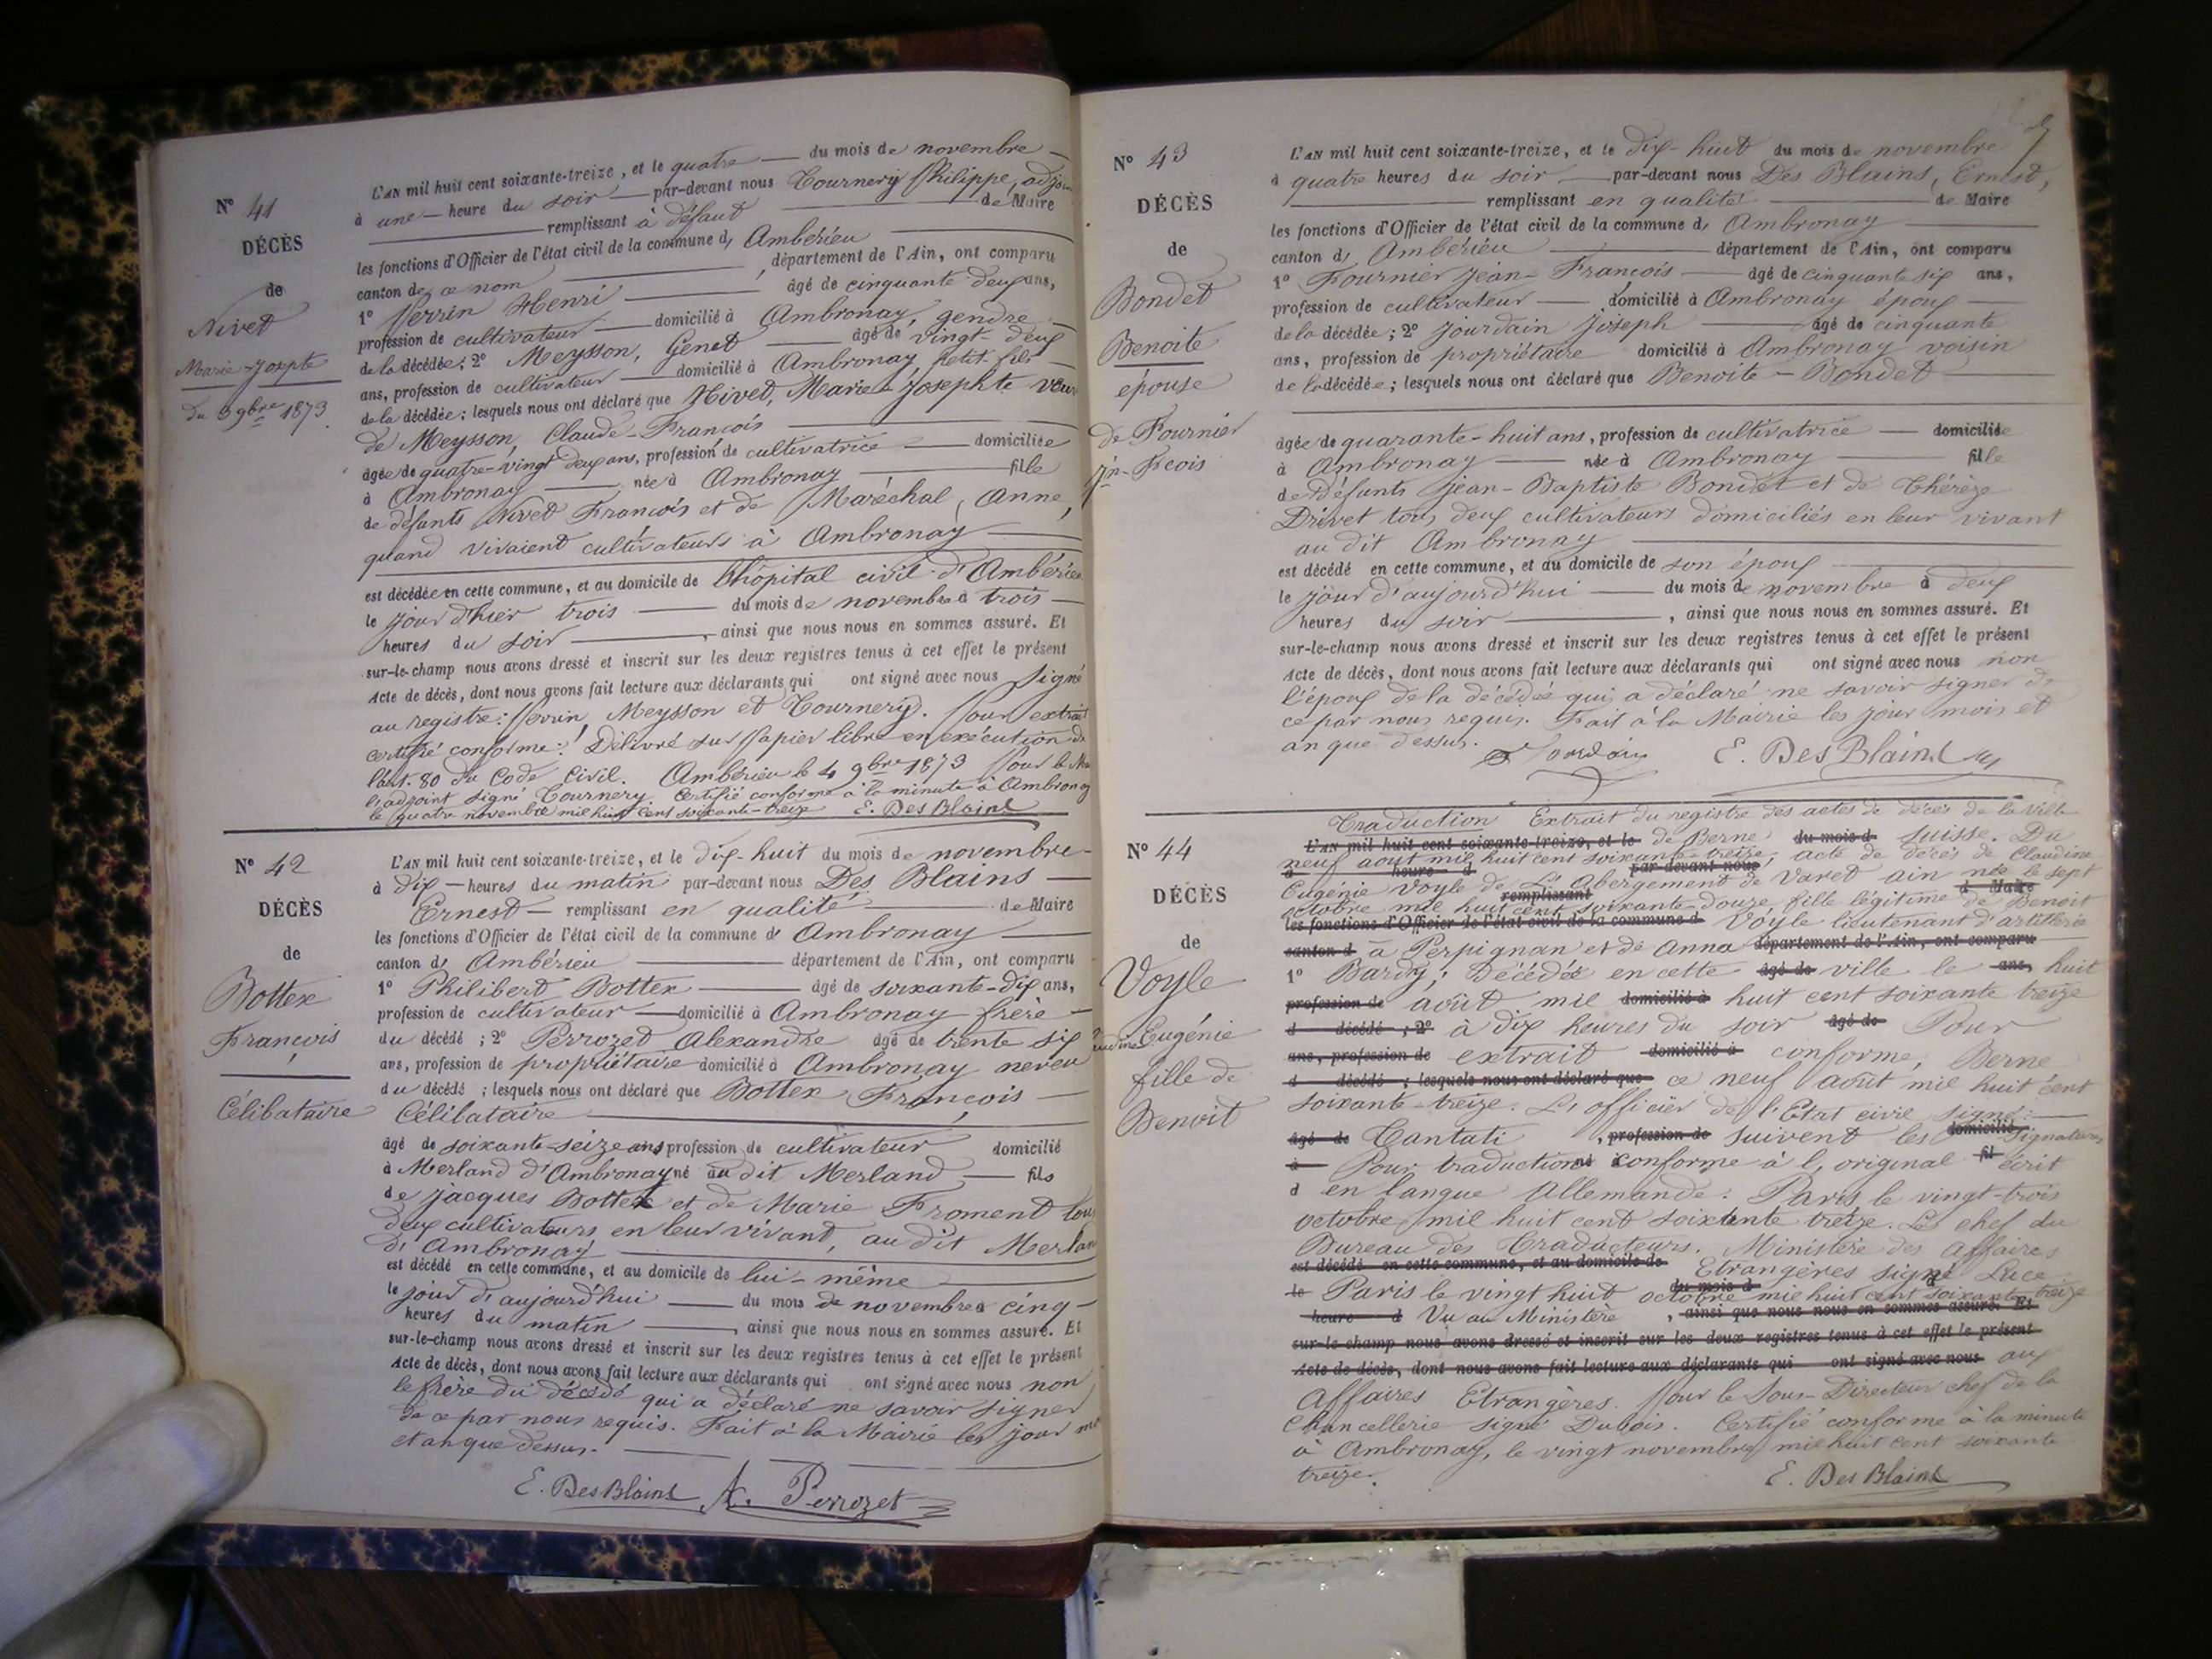 N° 41
DÉCÈS
de
Nivet
Marie-Josphte
Du 3 9bre 1873.
L'AN mil huit cent soixante-treize, et le quatre du mois de novembre
à une heure du soir par-devant nous Tournery Philippe, adjoint
remplissant à défaut de Maire
les fonctions d'Officier de l'état civil de la commune d'Ambérieu
canton de ce nom, département de l'Ain, ont comparu
1° Perrin Henri âgé de cinquante deux ans,
profession de cultivateur domicilié à Ambronay, gendre
de la décédée; 2° Meysson, Genet âgé de vingt-deux
ans, profession de cultivateur domicilié à Ambronay petit-fils
de la décédée; lesquels nous ont déclaré que Nivet, Marie-Josephte veuve
de Meysson, Claude-François
âgée de quatre-vingt deux ans, profession de cultivatrice domiciliée
à Ambronay née à Ambronay fille
de défunts Nivet François et de Maréchal, Anne,
quand vivaient cultivateurs à Ambronay
est décédée en cette commune, et au domicile de l'hôpital civil d'Ambérieu
le jour d'hier trois du mois de novembre à trois
heures du soir, ainsi que nous nous en sommes assuré. Et
sur-le-champ nous avons dressé et inscrit sur les deux registres tenus à cet effet le présent
Acte de décès, dont nous avons fait lecture aux déclarants qui ont signé avec nous Signé
au registre: Perrin, Meysson et Tournery. Pour extrait
certifié conforme: Délivré sur papier libre en exécution de
l'art. 80 du Code Civil. Ambérieu le 4 9bre 1873 Pour le Maire
l'adjoint signé Tournery Certifié conforme à la minute à Ambronay
le quatre novembre mil huit cent soixante-treize E. Des Blains
N° 42
DÉCÈS
de
Bottex
François
Célibataire
L'AN mil huit cent soixante-treize, et le dix-huit du mois de novembre
à dix heures du matin par-devant nous Des Blains
Ernest remplissant en qualité de Maire
les fonctions d'Officier de l'état civil de la commune d'Ambronay
canton d'Ambérieu département de l'Ain, ont comparu
1° Philibert Bottex âgé de soixante-dix ans,
profession de cultivateur domicilié à Ambronay frère
du décédé; 2° Perrozet Alexandre âgé de trente six
ans, profession de propriétaire domicilié à Ambronay neveu
du décédé; lesquels nous ont déclaré que Bottex François
Célibataire
âgé de soixante-seize ans profession de cultivateur domicilié
à Merland d'Ambronay né au dit Merland fils
de Jacques Bottex et de Marie Froment tous
deux cultivateurs en leur vivant, au dit Merland
d'Ambronay
est décédé en cette commune, et au domicile de lui-même
le jour d'aujourd'hui du mois de novembre à cinq
heures du matin, ainsi que nous nous en sommes assuré. Et
sur-le-champ nous avons dressé et inscrit sur les deux registres tenus à cet effet le présent
Acte de décès, dont nous avons fait lecture aux déclarants qui ont signé avec nous non
le frère du décédé qui a déclaré ne savoir signer
de ce par nous requis. Fait à la Mairie les jour mois
et an que dessus.
E. Des Blains A. Perrozet
N° 43
DÉCÈS
de
Bondet
Benoite
épouse
de Fournier
Jn-Fcois
L'AN mil huit cent soixante-treize, et le dix-huit du mois de novembre
à quatre heures du soir par-devant nous Des Blains, Ernest,
remplissant en qualité de Maire
les fonctions d'Officier de l'état civil de la commune d'Ambronay
canton d'Ambérieu département de l'Ain, ont comparu
1° Fournier Jean-François âgé de cinquante six ans,
profession de cultivateur domicilié à Ambronay époux
de la décédée; 2° Jourdain Joseph âgé de cinquante
ans, profession de propriétaire domicilié à Ambronay voisin
de la décédée; lesquels nous ont déclaré que Benoite-Bondet
âgée de quarante-huit ans, profession de cultivatrice domiciliée
à Ambronay née à Ambronay fille
de défunts Jean-Baptiste Bondet et de Thérèze
Drivet tous deux cultivateurs domiciliés en leur vivant
au dit Ambronay
est décédé en cette commune, et au domicile de son époux
le jour d'aujourd'hui du mois de novembre à deux
heures du soir, ainsi que nous nous en sommes assuré. Et
sur-le-champ nous avons dressé et inscrit sur les deux registres tenus à cet effet le présent
Acte de décès, dont nous avons fait lecture aux déclarants qui ont signé avec nous non
l'époux de la décédée qui a déclaré ne savoir signer de
ce par nous requis. Fait à la Mairie les jour mois et
an que dessus. Jourdain E. Des Blains
N° 44
DÉCÈS
de
Voyle
Eugénie
fille de
Benoit
Traduction Extrait du registre des actes de décès de la ville
L'AN mil huit cent soixante-treize, et le de Berne du mois d Suisse. Du
neuf aout mil huit cent soixante-treize, acte de décès de Claudine
à heure d par-devant nous
Eugénie Voyle de L'Abergement de Varet ain née le sept
remplissant d Maire
octobre mil huit cent soixante-douze fille légitime de Benoit
les fonctions d'Officier de l'état civil de la commune d Voyle lieutenant d'artillerie
canton d à Perpignan et de Anna département de l'Ain, ont comparu
1° Bardy; Décédée en cette âgé de ville le ans, huit
profession de août mil domicilié à huit cent soixante treize
d décédé; 2° à dix heures du soir âgé de Pour
ans, profession de extrait domicilié à conforme, Berne
d décédé; lesquels nous ont déclaré que ce neuf août mil huit cent
soixante-treize. L'officier de l'Etat civil signé:
âgé de Cantati, profession de suivent les domicilié signatures
à Pour traduction né conforme à l'original fil écrit
d en langue Allemande. Paris le vingt-trois
octobre mil huit cent soixante treize. Le chef du
Bureau des Traducteurs. Ministère des affaires
est décédé en cette commune, et au domicile de Etrangères signé Luce
le Paris le vingt huit octobre du mois d mil huit cent soixante treize
heure d Vu au Ministère, ainsi que nous nous en sommes assuré. Et
sur-le-champ nous avons dressé et inscrit sur les deux registres tenus à cet effet le présent
Acte de décès, dont nous avons fait lecture aux déclarants qui ont signé avec nous aux
Affaires Etrangères. Pour le Sous-Directeur chef de la
Chancellerie signé Dubois. Certifié conforme à la minute
à Ambronay, le vingt novembre mil huit cent soixante
treize. E. Des Blains